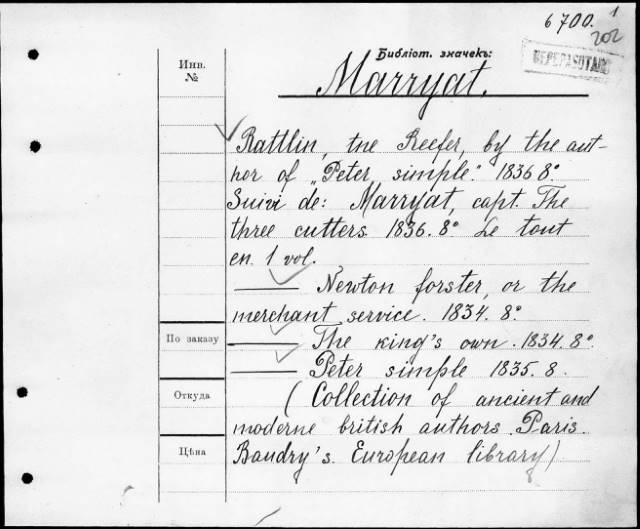 6700. 1
202
Библіот. значекъ:
Инв.
№
Marryat.
Rattlin, tne Reefer, by the aut-
hor of „Peter simple." 1836 8°.
Suivi de: Marryat, capt. The
three cutters 1836. 8° Le tout
en 1 vol.
Newton forster, or the
merchant service. 1834. 8°
По заказу
The king's own. 1834. 8°.
Peter simple 1835. 8.
Откуда
(Collection of ancient and
moderne british authors. Paris.
Цѣна
Baudry's European library)